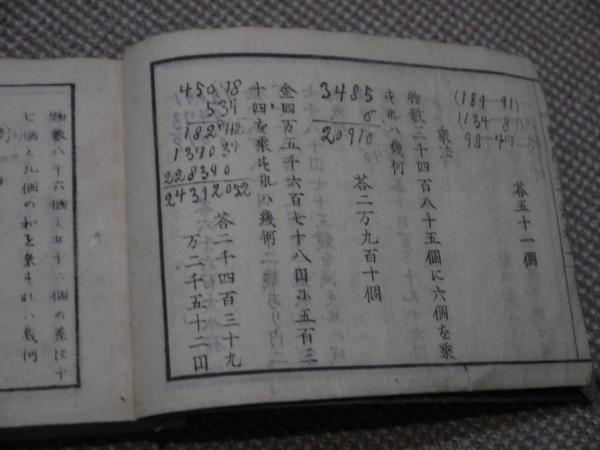 (189 91)
(134 87)
98 47
答五十一個
乗法
物数三千四百八十五個に六個を乗
すれハ幾何
3485
6
20910
答二万九百十個
金四万五千六百七十八円に五百三
十四を乗すれハ幾何
45678
534
182712
137034
228390
24392052
答二千四百三十九
万二千五十二円
物数八十六個と五十二個の差に十
七個と九個の和を乗すれハ幾何